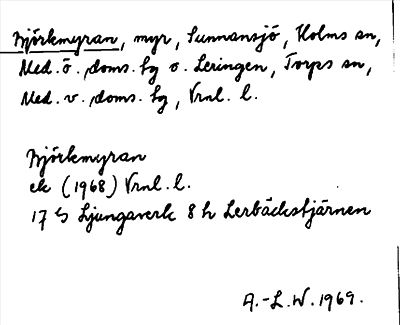 Björkmyran, myr, Sunnansjö, Holms sn,
Med. ö., doms. hg o. Leringen, Torps sn,
Med. v., doms. hg, Vrnl. l.
Björkmyran
ek (1968) Vrnl. l.
17 G Ljungaverk 8 h Lerbäckstjärnen
A.-L. W. 1969.